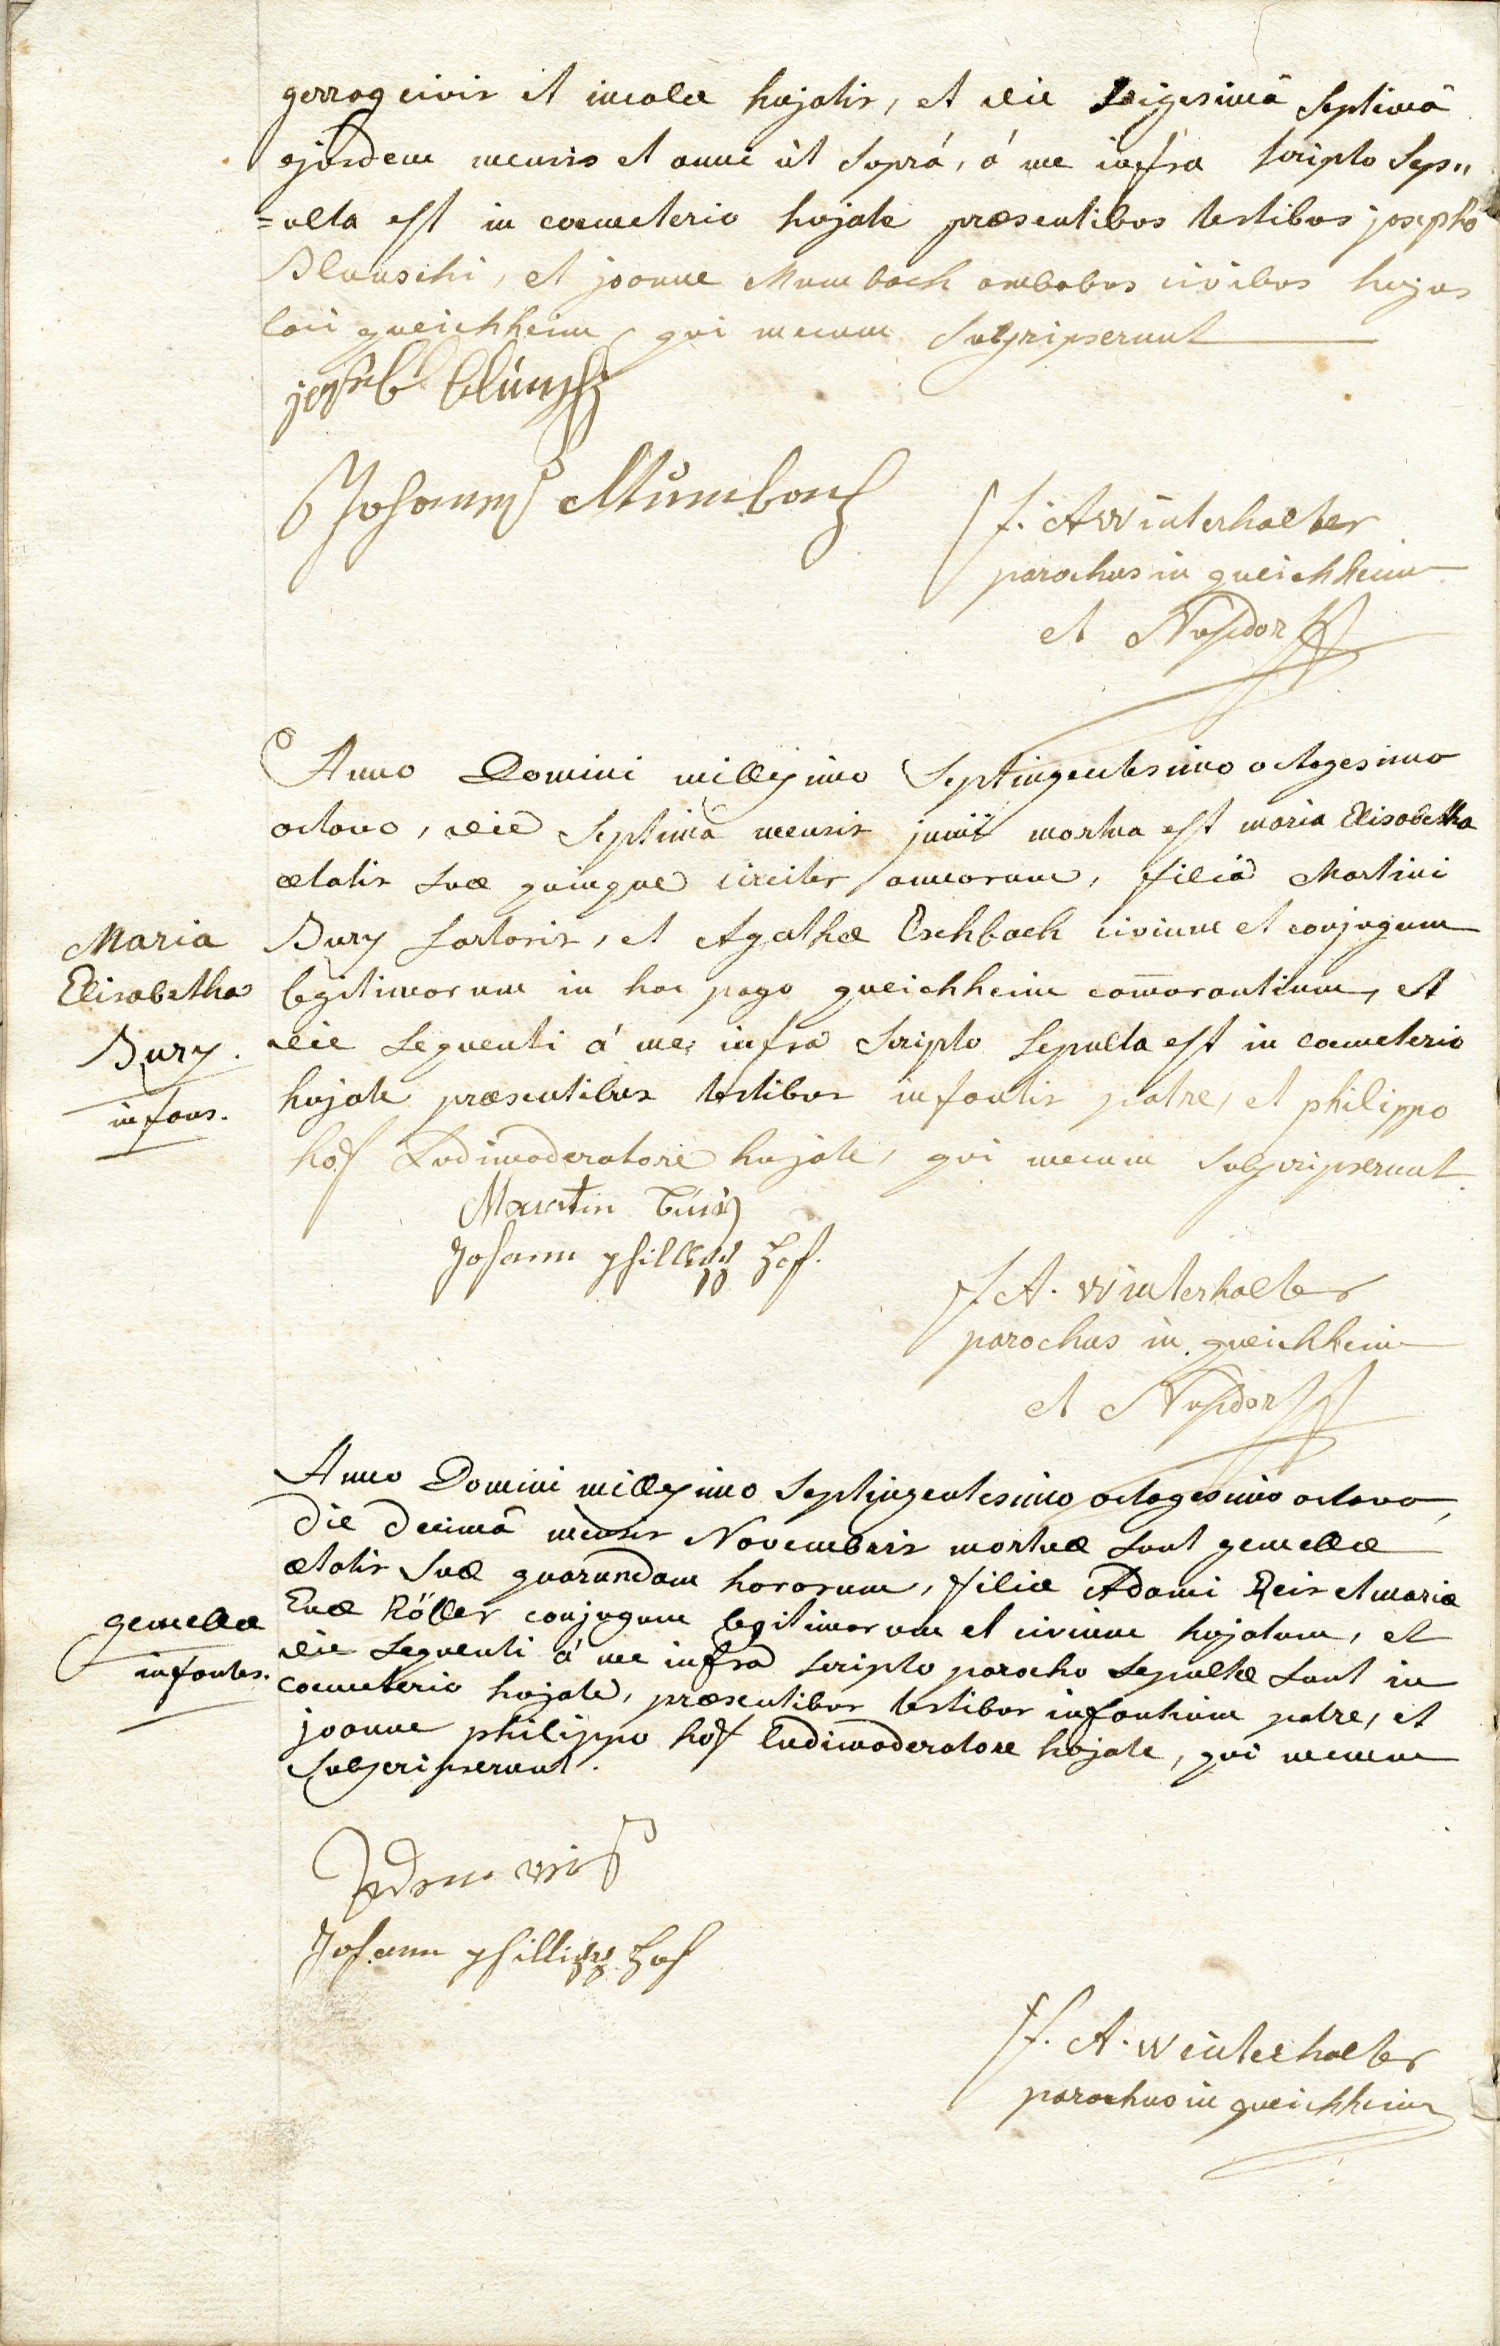 gerrag civis et incolæ hujatis, et die vigesimâ septimâ
ejusdem mensis et anni ût suprá, á me infra scripto sep„
=ulta est in coemeterio hujate præsentibus testibus josepho
Blunschi, et joanne Mumbach ambobus civibus hujus
loci queichheim, qui mecum subscripserunt
joseb blünschi
Johannes Mŭmbach
f. A Winterhalter
parochus in queichheim
et Nusdorff
Anno Domini millesimo septingentesimo octogesimo
octavo, die septimâ mensis junii mortua est maria Elisabetha
ætatis suæ quinque circiter annorum, filia Martini
Maria
Elisabetha
Bury.
infans.
Bury sartoris, et Agathæ Eschbach civium et conjugum
legitimorum in hoc pago queichheim com̄orantium, et
die sequenti á me infra scripto sepulta est in coemeterio
hujate præsentibus testibus infantis patre, et philippo
hof Ludimoderatore hujate, qui mecum subscripserunt.
Martin Büri
Johann phillipp Hof.
f. A. Winterhalter
parochus in queichheim
et Nusdorff
Anno Domini millesimo septingentesimo octogesimo octavo,
die decimâ mensis Novembris mortuæ sunt gemellæ
ætatis suæ quarundam horarum, filiæ Adami Reis et mariæ
gemellæ
infantes.
Evæ Röller conjugum legitimorum et civium hujatum, et
die sequenti á me infra scripto parocho sepultæ sunt in
coemeterio hujate, præsentibus testibus infantium patre, et
joanne philippo hof Ludimoderatore hujate, qui mecum
subscripserunt.
Adam reis
Johann phillipp Hof
f. A. Winterhalter
parochus in queichheim